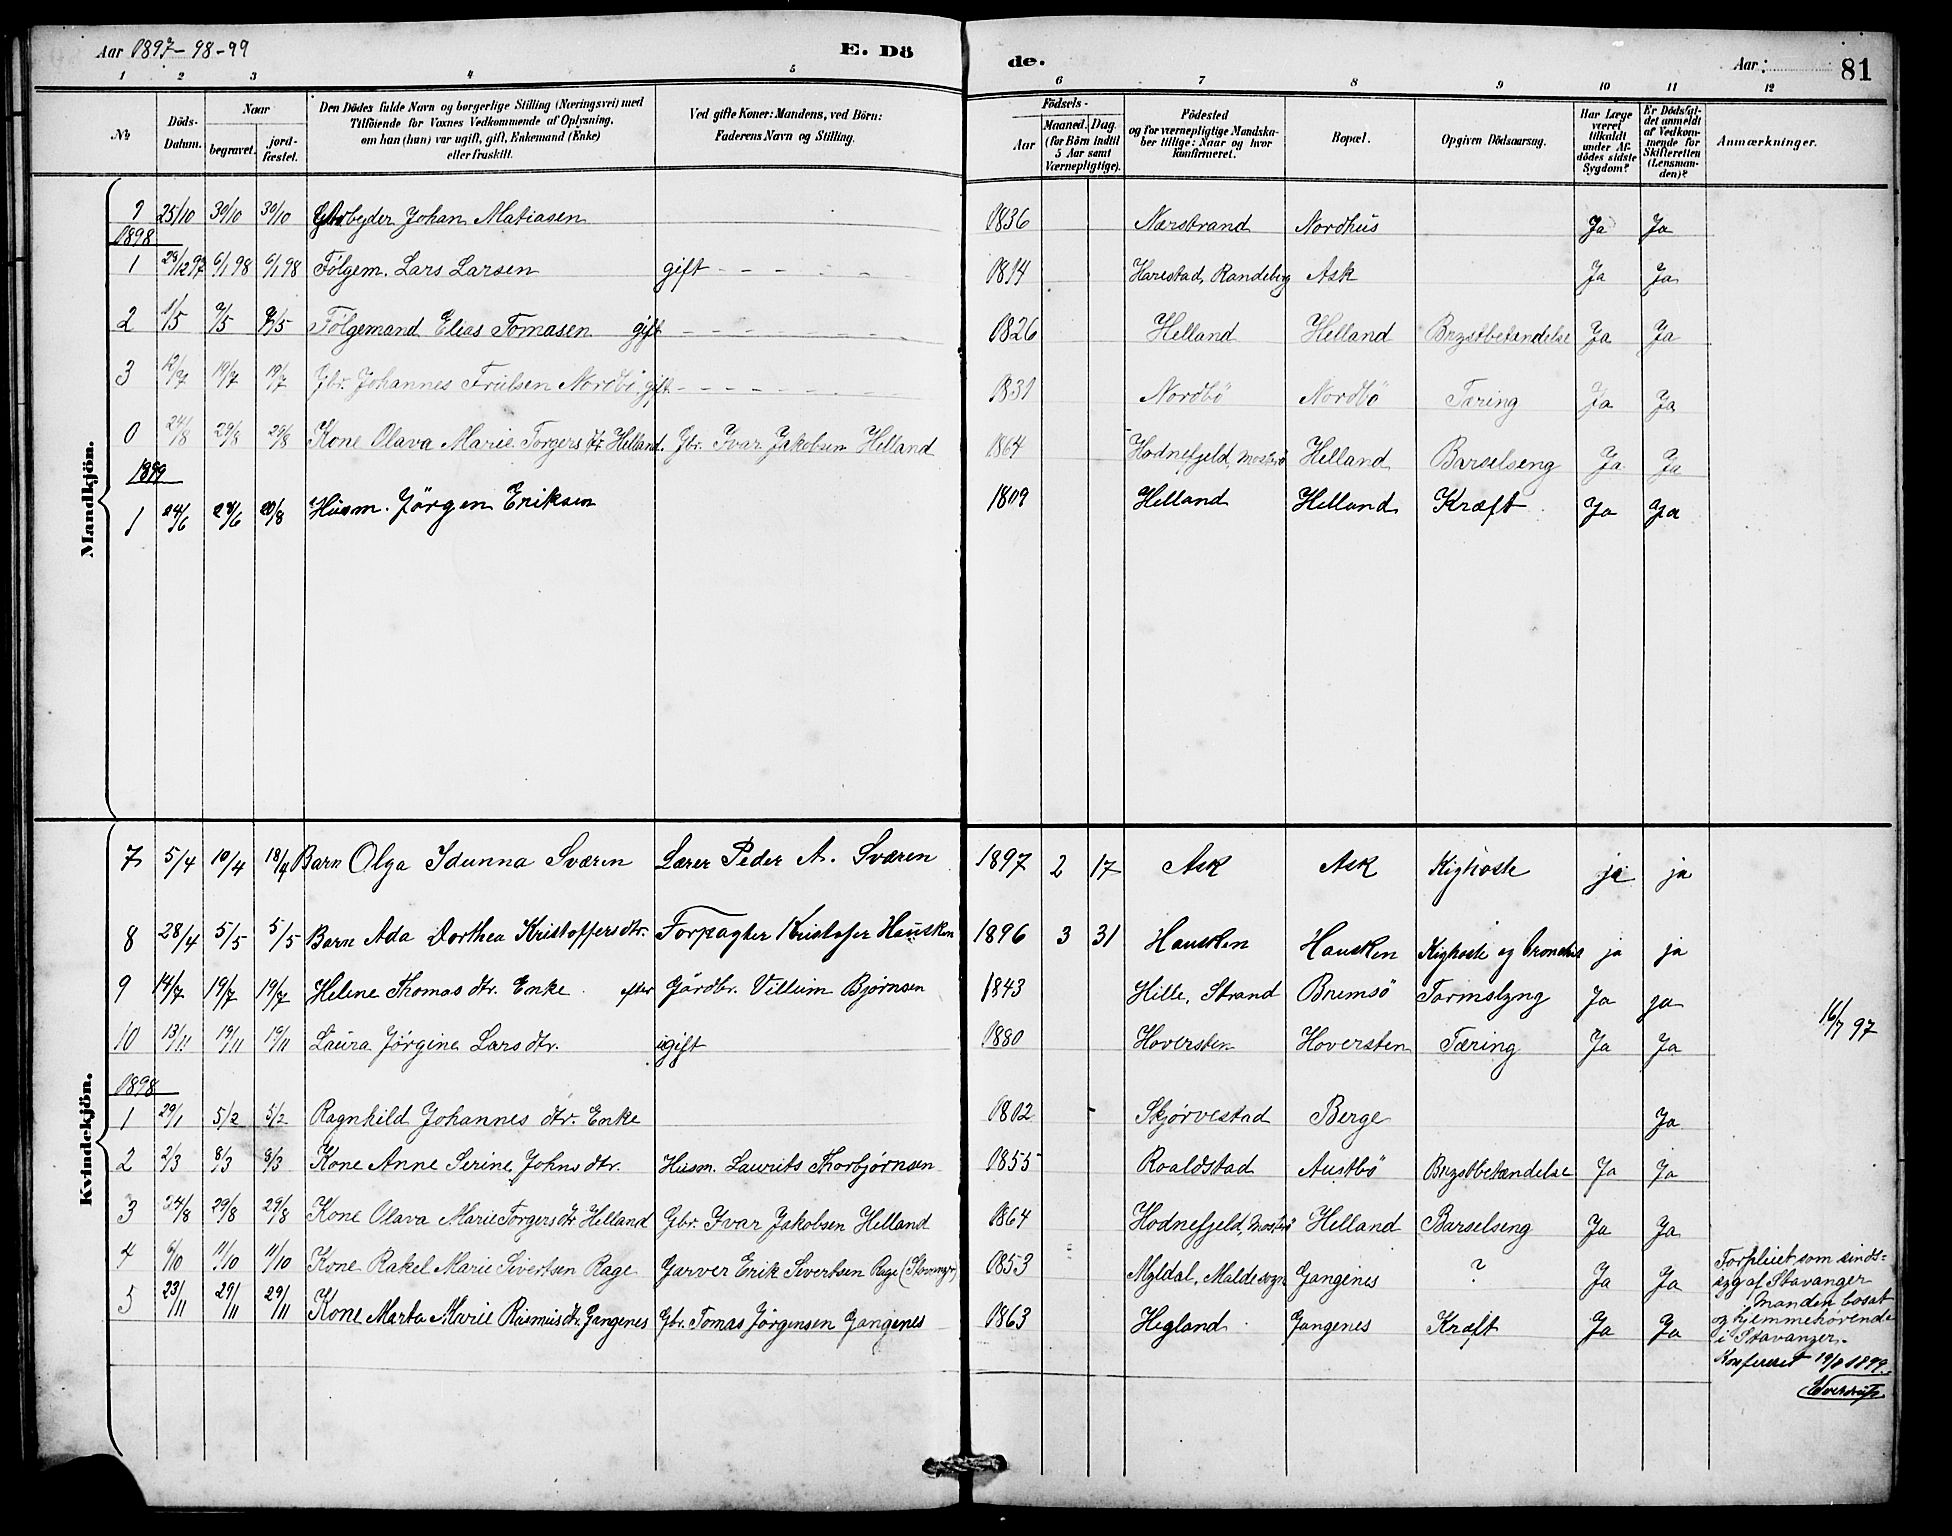 Aar 1897-98-99 E. Dö de. Aar: 81
1 2 3 4 5 6 7 8 9 10 11 12
No
Döds-Datum.
Naar begravet. jordfæstet.
Den Dödes fulde Navn og borgerlige Stilling (Næringsvei) med
Tilföiende for Voxnes Vedkommende af Oplysning.
om han (hun) var ugift, gift, Enkemand (Enke)
eller fraskilt.
Ved gifte Koner: Mandens, ved Börn:
Faderens Navn og Stilling.
Födsels-
Aar Maaned. Dag.
(for Börn indtil
5 Aar samt
Værnepligtige).
Födested
og for værnepligtige Mandska-
ber tillige: Naar og hvor
Konfirmeret.
Bopæl.
Opgiven Dödsaarsag.
Har Læge
været
tilkaldt
under Af-
dödes sidste
Sygdom?
Er Dödsfal-
det anmeldt
af Vedkom-
mende for
Skifteretten
(Lensman-
den)?
Anmærkninger.
Mandkjön.
9 25/10 30/10 30/10 Johan Matiasen 1836 Nærstrand Nordhus Ja Ja
1898
1 29/12 97 6/1 98 6/1 98 Følgem. Lars Larsen gift 1814 Harestad, Randeberg Ask Ja Ja
2 1/5 9/5 9/5 Følgemand Elias Tomasen gift 1826 Helland Helland Brystbetændelse Ja Ja
3 12/7 19/7 19/7 Gbr. Johannes Nordbö, gift 1831 Nordbö Nordbö Tæring Ja Ja
0 24/8 29/8 29/8 Kone Olava Marie Torgers dtr Helland. Gbr. Ivar Jakobsen Helland 1864 Hodnefjeld, Mosterö Helland Barselseng Ja Ja
1899
1 24/6 29/6 20/8 Husm. Jörgen Eriksen 1809 Helland Helland Kræft Ja Ja
Kvindekjön.
7 5/4 10/4 18/4 Barn Olga Idunna Sværen Lærer Peder A. Sværen 1897 2 17 Ask Ask Kighoste ja ja
8 28/4 5/5 5/5 Barn Ada Dorthea Kristoffersdtr. Forpagter Kristofer Hausken 1896 3 31 Hausken Hausken Kighoste og ja ja
9 14/7 19/7 19/7 Helene Thomas dtr. Enke efter Gårdbr. Villum Bjørnsen 1843 Hille, Strand Bremsö Tarmslyng Ja ja 16/7 97
10 13/11 19/11 19/11 Laura Jørgine Lars dtr. ugift 1880 Hoversten Hoversten Tæring Ja Ja
1898
1 29/1 5/2 5/2 Ragnhild Johannes dtr. Enke 1802 Skjørvestad Berge Ja
2 2/3 8/3 8/3 Kone Anne Serine Johns dtr. Husm. Laurits Thorbjørnsen 1855 Roaldstad Austbö Brystbetændelse Ja Ja
3 24/8 29/8 29/8 Kone Olava Marie Torgers dtr Helland Gbr. Ivar Jakobsen Helland 1864 Hodnefjeld, Mosterö Helland Barselseng Ja Ja
4 6/10 11/10 11/10 Kone Rakel Marie Sivertsen Rage Garver Erik Sivertsen Rage 1853 Gangenes ? Ja Ja Forpleiet som sinds-
syg af Stavanger
Manden bosat
og hjemmehörende
i Stavanger.
5 23/11 29/11 29/11 Kone Marta Marie Rasmus dtr. Gangenes Gbr. Tomas Jörgensen Gangenes 1863 Hegland Gangenes Kræft Ja Ja
Konfereret 19/8 1899.